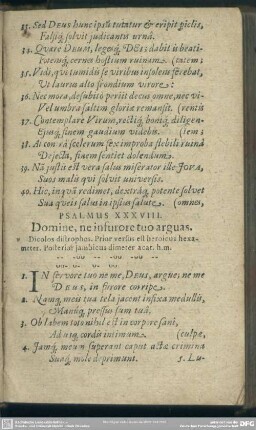 33. Sed DEUS hunc ipsũ tutatur & eripit gladiis,
Falsũq́; solvit judicantis urnâ.
34. Quare DEUM, legesq́; DEI: dabit is beati-
Fatemq́; cernes hostium ruinam. (tatem;
35. Vidi, qui tumidis se viribus insolens ferebat,
Ut laurus alto frondium virore:
36. Nec mora, desubitò periit decus omne, nec vi-
Vel umbra saltem gloriæ remansit.
37. Contemplare Virum, rectiq́; boniq́; diligen-
Ejusq́; finem gaudium videbis. (tem;
38. At contrà scelerum sex improba flebili ruinâ
Dejecta, finem sentiet dolendum.
39. Nã justis est vera salus miserator ille JOVA,
Suos malis qui solvit universis.
40. Hic, in quã redimet, dextrâq́; potente solvet
Suaq́ueis salus in ipsius salute. (omnes,
PSALMUS XXXVIII.
Domine, ne in furore tuo arguas.
Dicolos distrophos. Prior versus est heroicus hexa-
meter. Posterior jambicus dimeter acat. h.m.
1. IN fervore tuo ne me, DEUS, argue; ne me
DEUS, in furore corripe.
2. Namq́; mei tua tela jacent infixa medullis,
Manúq́; pressus sum tuâ.
3. Ob labem toto nihil est in corpore sani,
Adusq́; cordis intimum. (culpæ,
4. Jamq́; meum superant caput actæ crimina
Suaq́; mole deprimunt.
5. Lu-
DFG